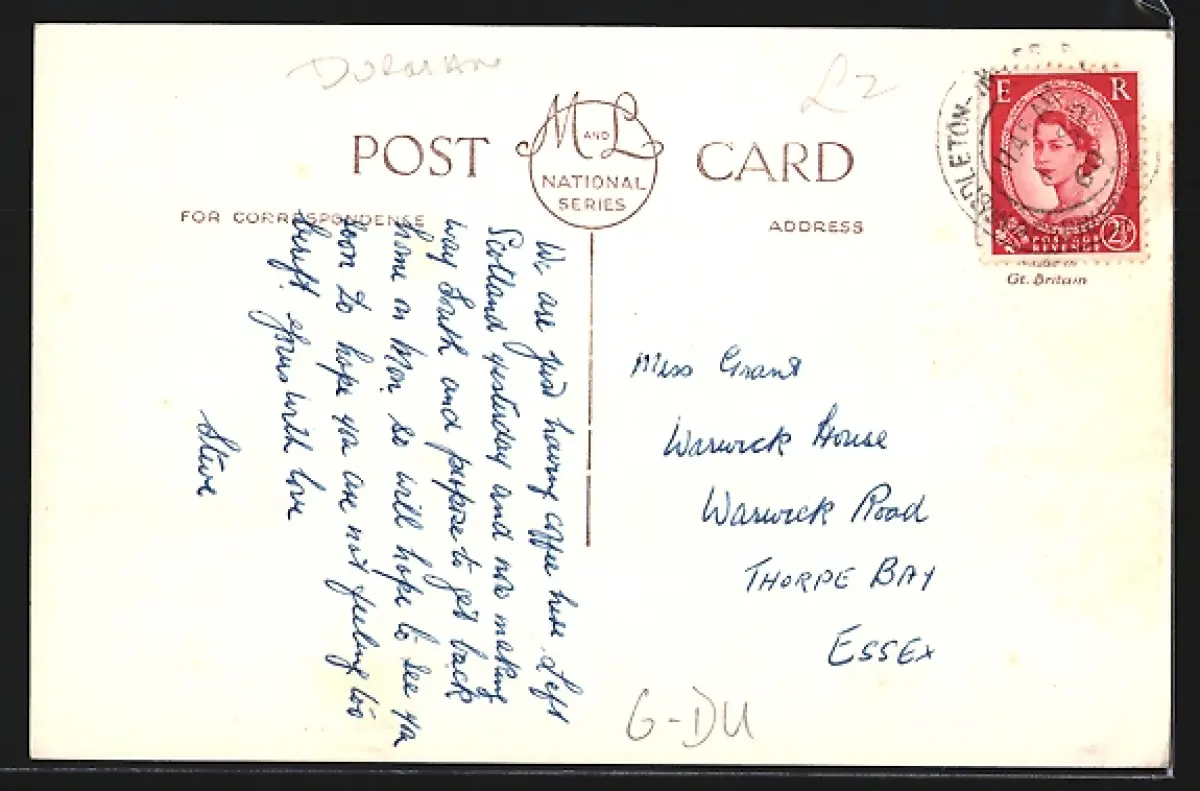 DURHAM
£2
POST CARD
M AND L
NATIONAL
SERIES
FOR CORRESPONDENCE
ADDRESS
E R
POSTAGE
REVENUE
2½
Gt. Britain
We are just having coffee here. Left
Scotland yesterday and now making
way South and purpose to get back
home on Mon. so will hope to see you
soon to hope you are not feeling too
with love
Steve
Miss Grant
Warwick House
Warwick Road
THORPE BAY
ESSEX
G-DU